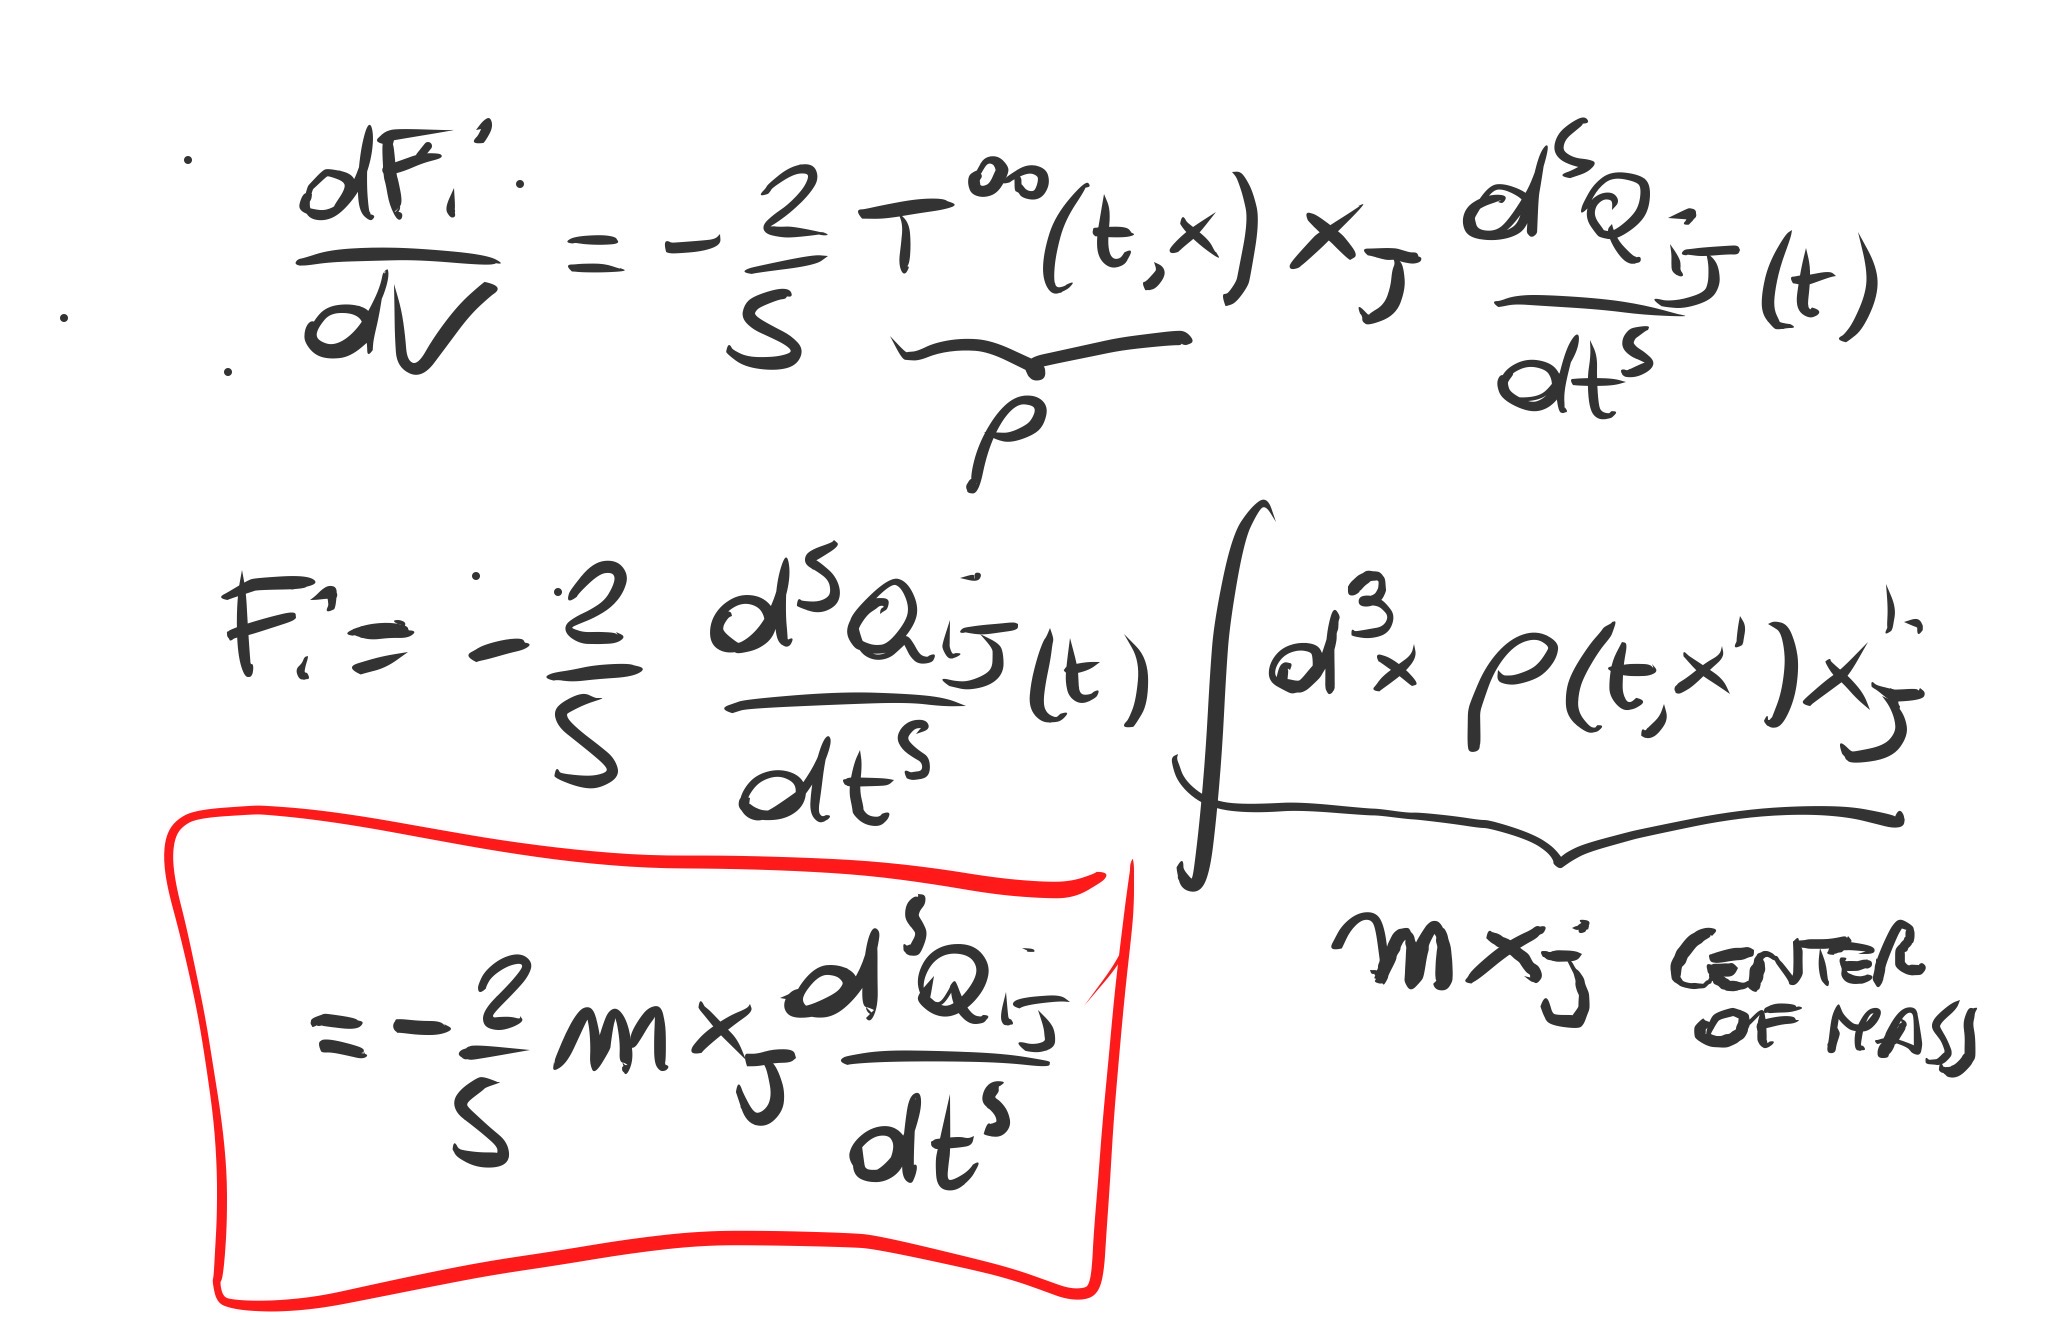 dFᵢ/dV = - 2/5 T⁰⁰(t,x) xⱼ d⁵Qᵢⱼ/dt⁵ (t)
ρ
Fᵢ = - 2/5 d⁵Qᵢⱼ/dt⁵ (t) ∫ d³x ρ(t,x') x'ⱼ
m xⱼ CENTER
OF MASS
= - 2/5 m xⱼ d⁵Qᵢⱼ/dt⁵